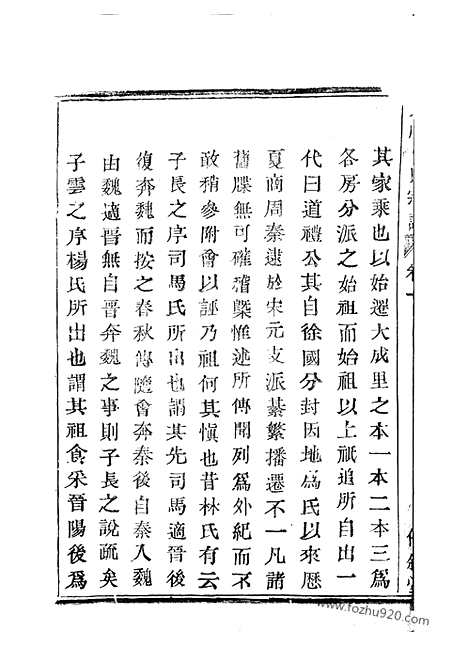 其家乘也以始遷大成里之本一本二本三爲
各房分派之始祖而始祖以上祇追所自出一
代曰道禮公其自徐國分封因地爲氏以來歷
夏商周秦逮於宋元支派綦繁播遷不一凡諸
舊牒無可確稽槩惟述所傳聞列爲外紀而不
敢稍參附會以誣乃祖何其愼也昔林氏有云
子長之序司馬氏所出也謂其先司馬適晉後
復奔魏而按之春秋傳隨會奔秦後自秦入魏
由魏適晉無自晉奔魏之事則子長之說疏矣
子雲之序楊氏所出也謂其祖食采晉陽後爲
www.fozhu920.com